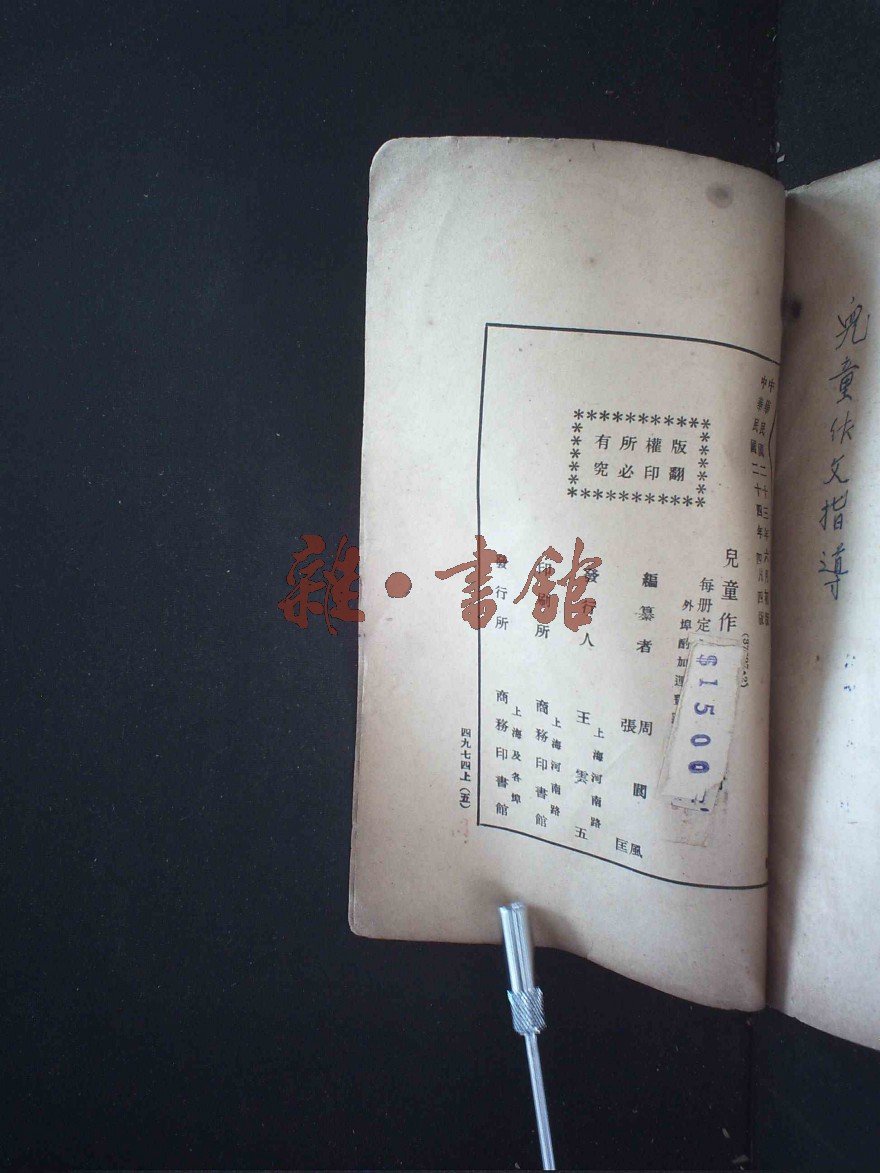 兒童作文指導
中華民國二十三年六月初版
中華民國二十四年四月四版
兒童作
每册定
外埠酌加運
版權所有
翻印必究
編纂者
周
張
國
風
匡
發行人
王雲五
上海河南路
印刷所
商務印書館
上海河南路
發行所
商務印書館
上海及各埠
四九七四上(五)
$1500
雜·書館